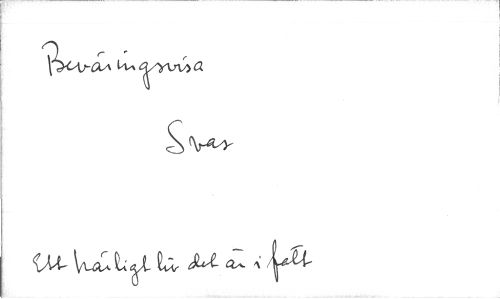 Beväringsvisa
Svar
Ett härligt liv det är i fält